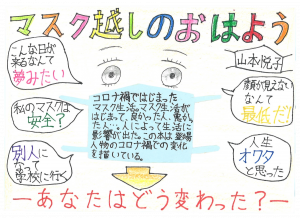 マスク越しのおはよう
山本悦子
こんな日が
来るなんて
夢みたい
私のマスクは
安全?
別人に
なって
学校に行く
コロナ禍ではじまった
マスク生活。マスク生活が
はじまって、良かった人、悪かっ
た人…。人によって生活に
影響が出た。この本は登場
人物のコロナ禍での変化
を描いている。
顔が見えない
なんて
最低だ!
人生
オワタ
と思った
ーあなたはどう変わった?ー